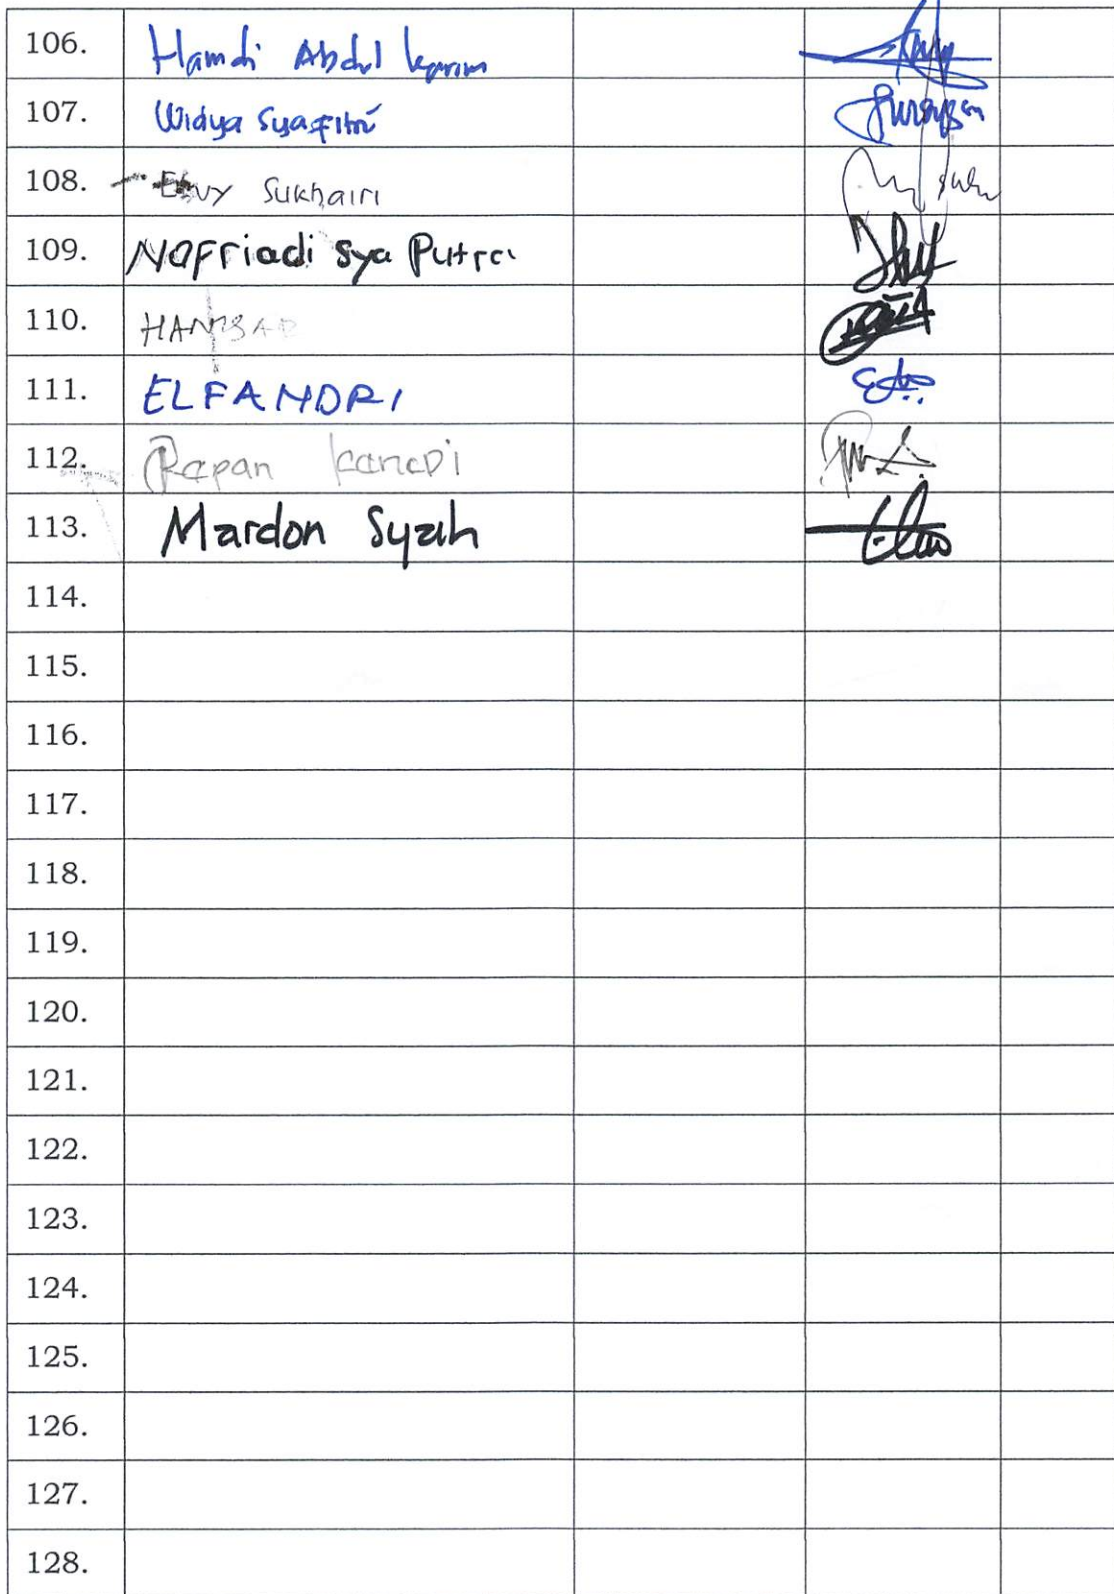 106. Hamdi Abdul Karim
107. Widya Syafitri
108. Sukhairi
109. Nofriadi Sya Putra
110.
111. ELFANDRI
112. Rapan
113. Mardon Syah
114.
115.
116.
117.
118.
119.
120.
121.
122.
123.
124.
125.
126.
127.
128.